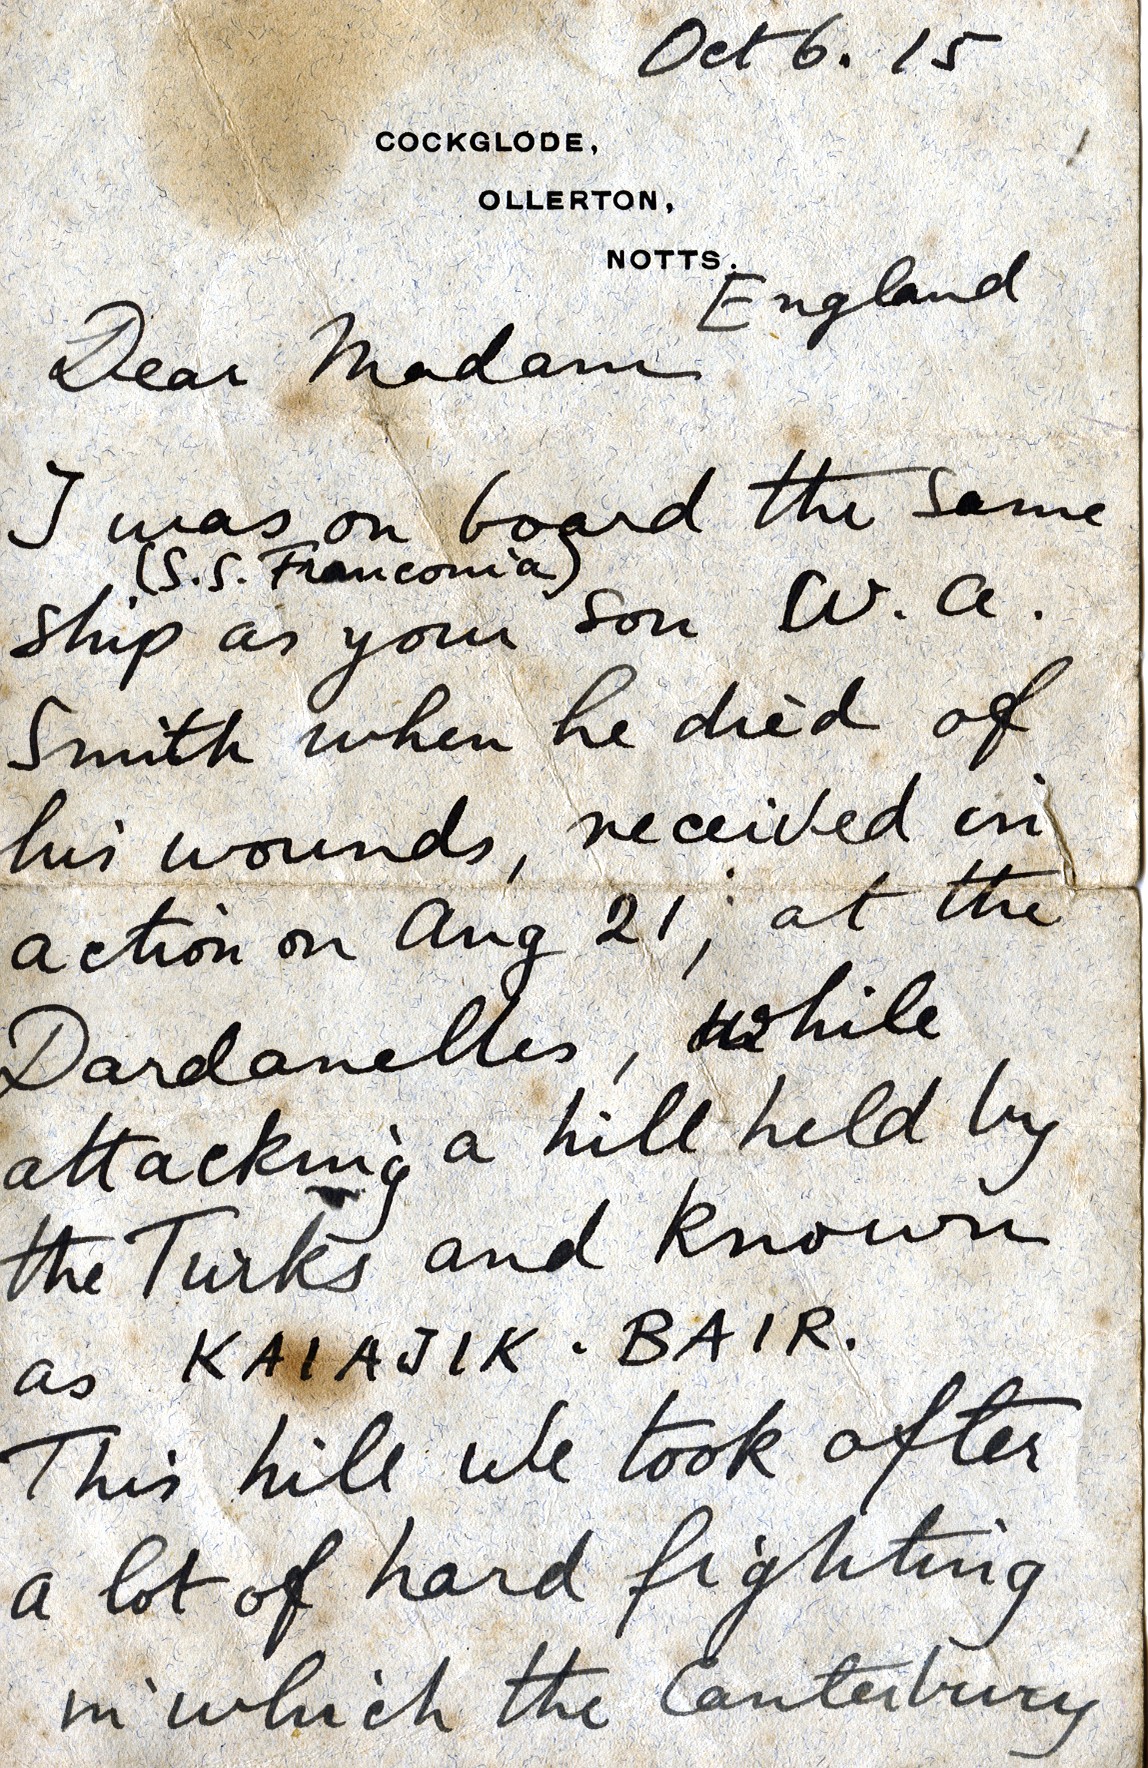 Oct 6. 15
COCKGLODE,
OLLERTON,
NOTTS.
England
Dear Madam
I was on board the same
(S.S. Franconia)
ship as your son W. A.
Smith when he died of
his wounds, received in
action on Aug 21; at the
Dardanelles, while
attacking a hill held by
the Turks and known
as KAIAJIK. BAIR.
This hill we took after
a lot of hard fighting
in which the Canterbury